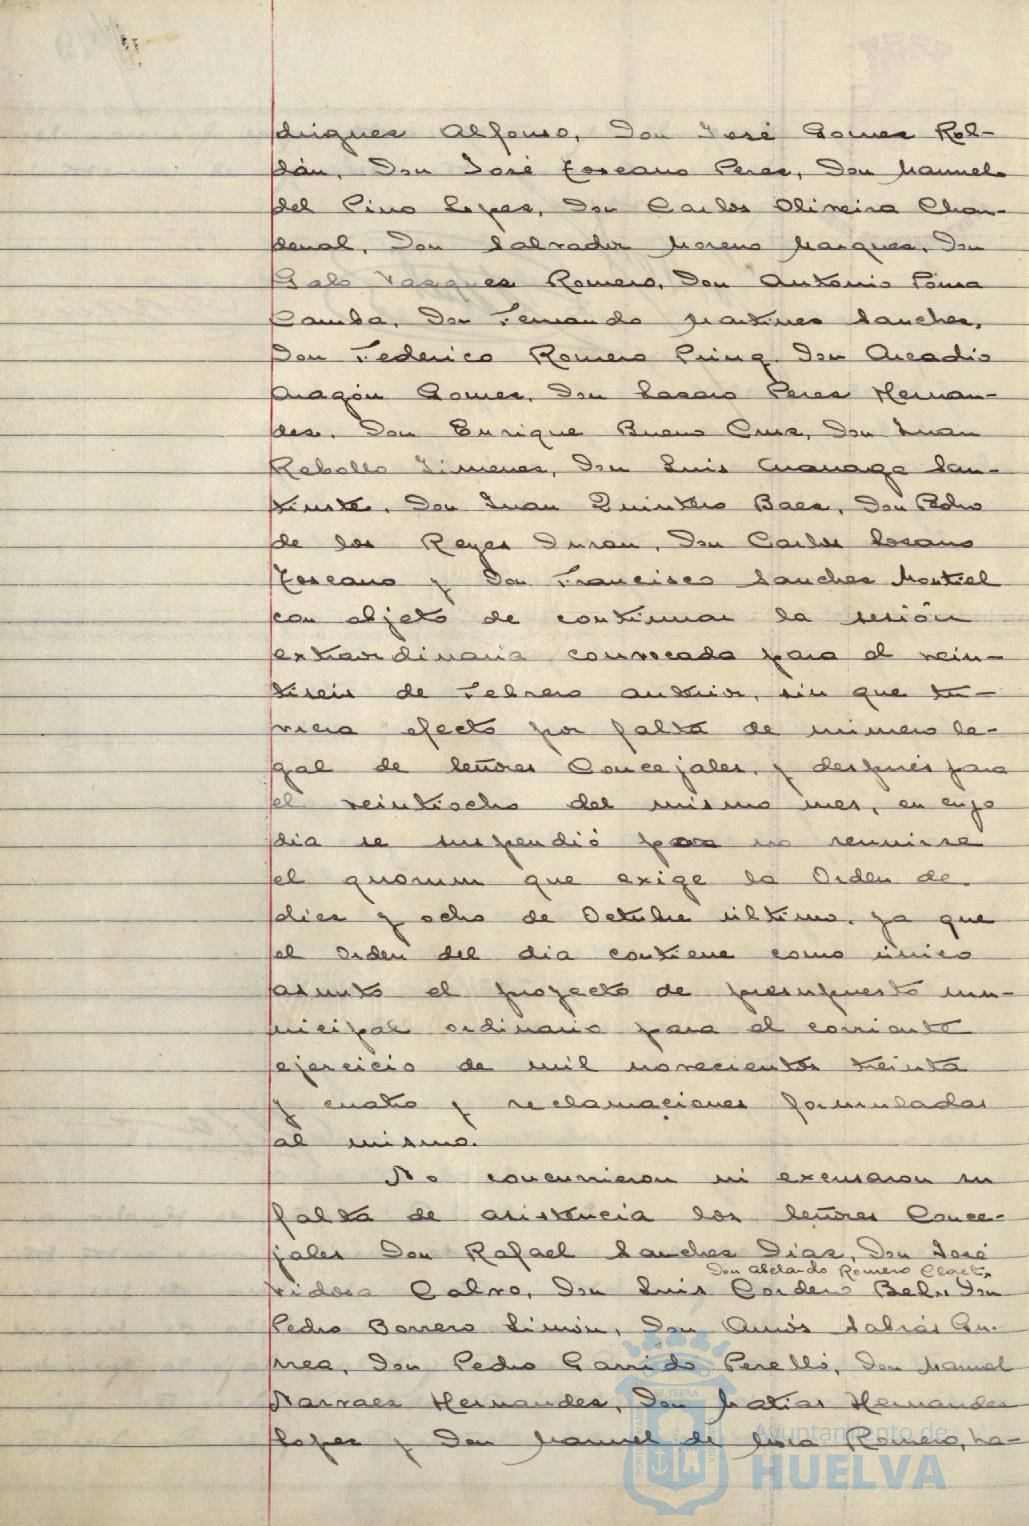 drigues Alfonso, Don José Gomes Rol-
dán, Don José Toscano Peres, Don Manuel
del Pino Lopes, Don Carlos Oliveira Chan-
denal, Don Salvador Moreno Marques, Don
Galo Vasques Romero, Don Antonio Ponsa
Camba, Don Fernando Martines Sanches,
Don Federico Romero Prinq Don Arcadio
Aragón Gomes, Don Lasaro Peres Hernan-
des, Don Enrique Bueno Crus, Don Juan
Rebollo Jimenes, Don Luis Cuanaga San-
tiuste, Don Juan Quintero Baes, Don Pedro
de los Reyes Duran, Don Carlos Losano
Toscano y Don Francisco Sanches Montiel
con objeto de continuar la sesión
extraordinaria convocada para el vein-
tiseis de Febrero anterior, sin que tu-
viera efecto por falta de número le-
gal de Señores Concejales, y después para
el veintiocho del mismo mes, en cuyo
dia se suspendió por no reunirse
el quorum que exige la Orden de
dies y ocho de Octubre último, ya que
el Orden del dia contiene como único
asunto el proyecto de presupuesto mu-
nicipal ordinario para el corriente
ejercicio de mil novecientos treinta
y cuatro y reclamaciones formuladas
al mismo.
No concurrieron ni excusaron su
falta de asistencia los Señores Conce-
jales Don Rafael Sanches Dias, Don José
Don Abelardo Romero Claret,
Vidosa Calvo, Don Luis Cordero Bel, Don
Pedro Borrero Limón, Don Amós Sabrás Gu-
rrea, Don Pedro Garrido Perelló, Don Manuel
Narvaes Hernandes, Don Matias Hernandes
Lopes y Don Manuel de Mora Romero, ha-
Ayuntamiento de
HUELVA